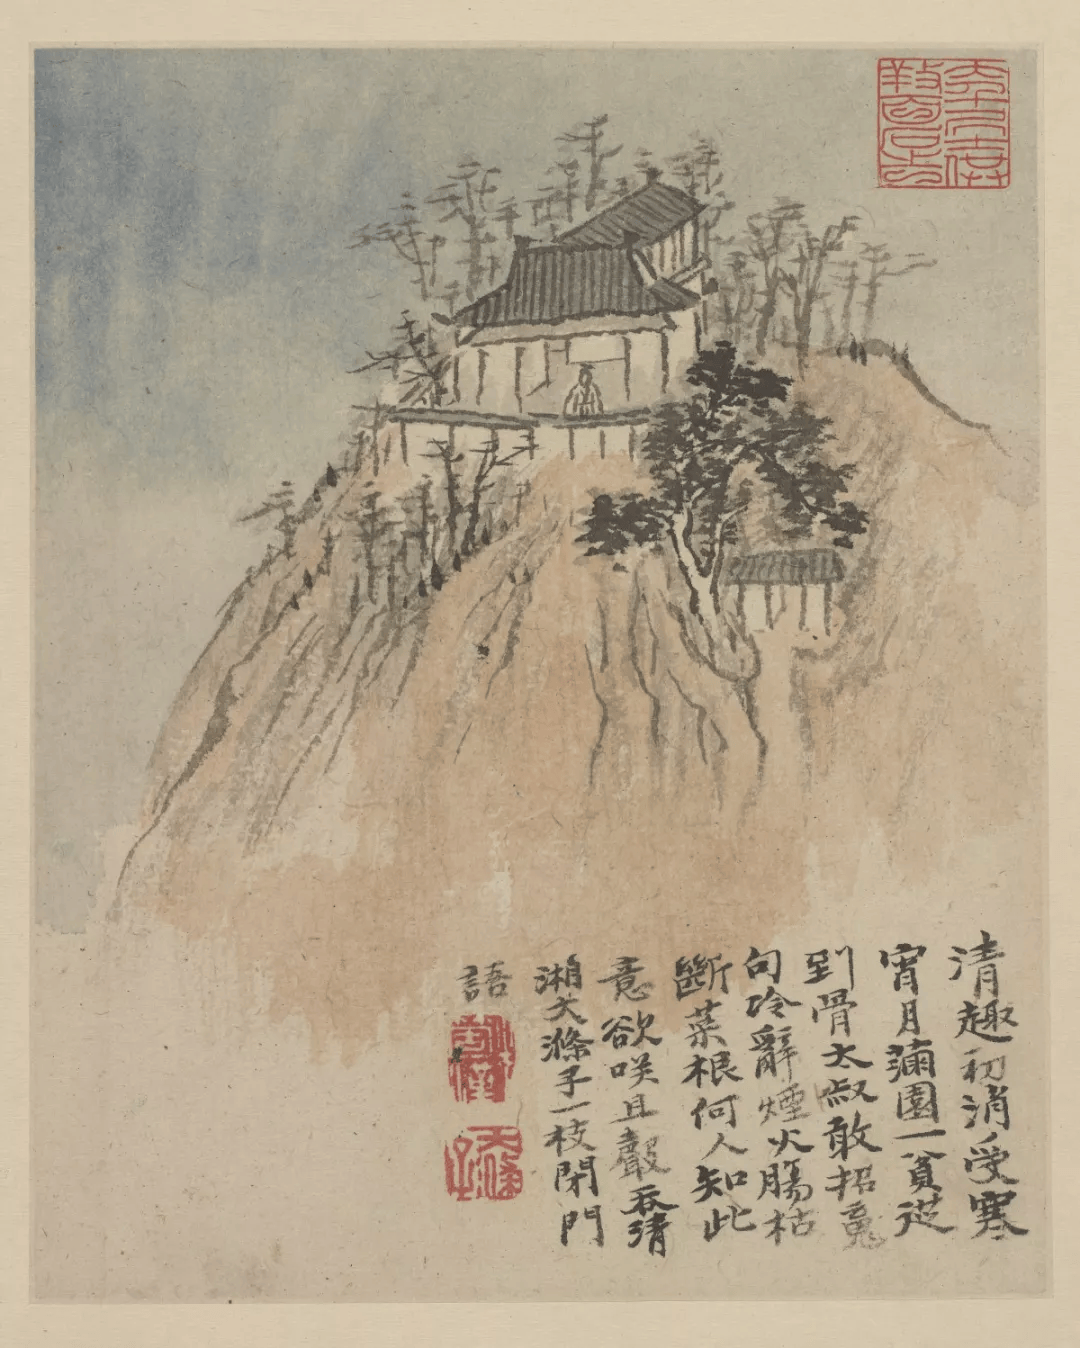 清趣初消受寒
宵月滿園一貧從
到骨太叔敢招蒐
句冷辭煙火腸枯
斷菜根何人知此
意欲咲且聲吞清
湘大滌子一枝閉門
語